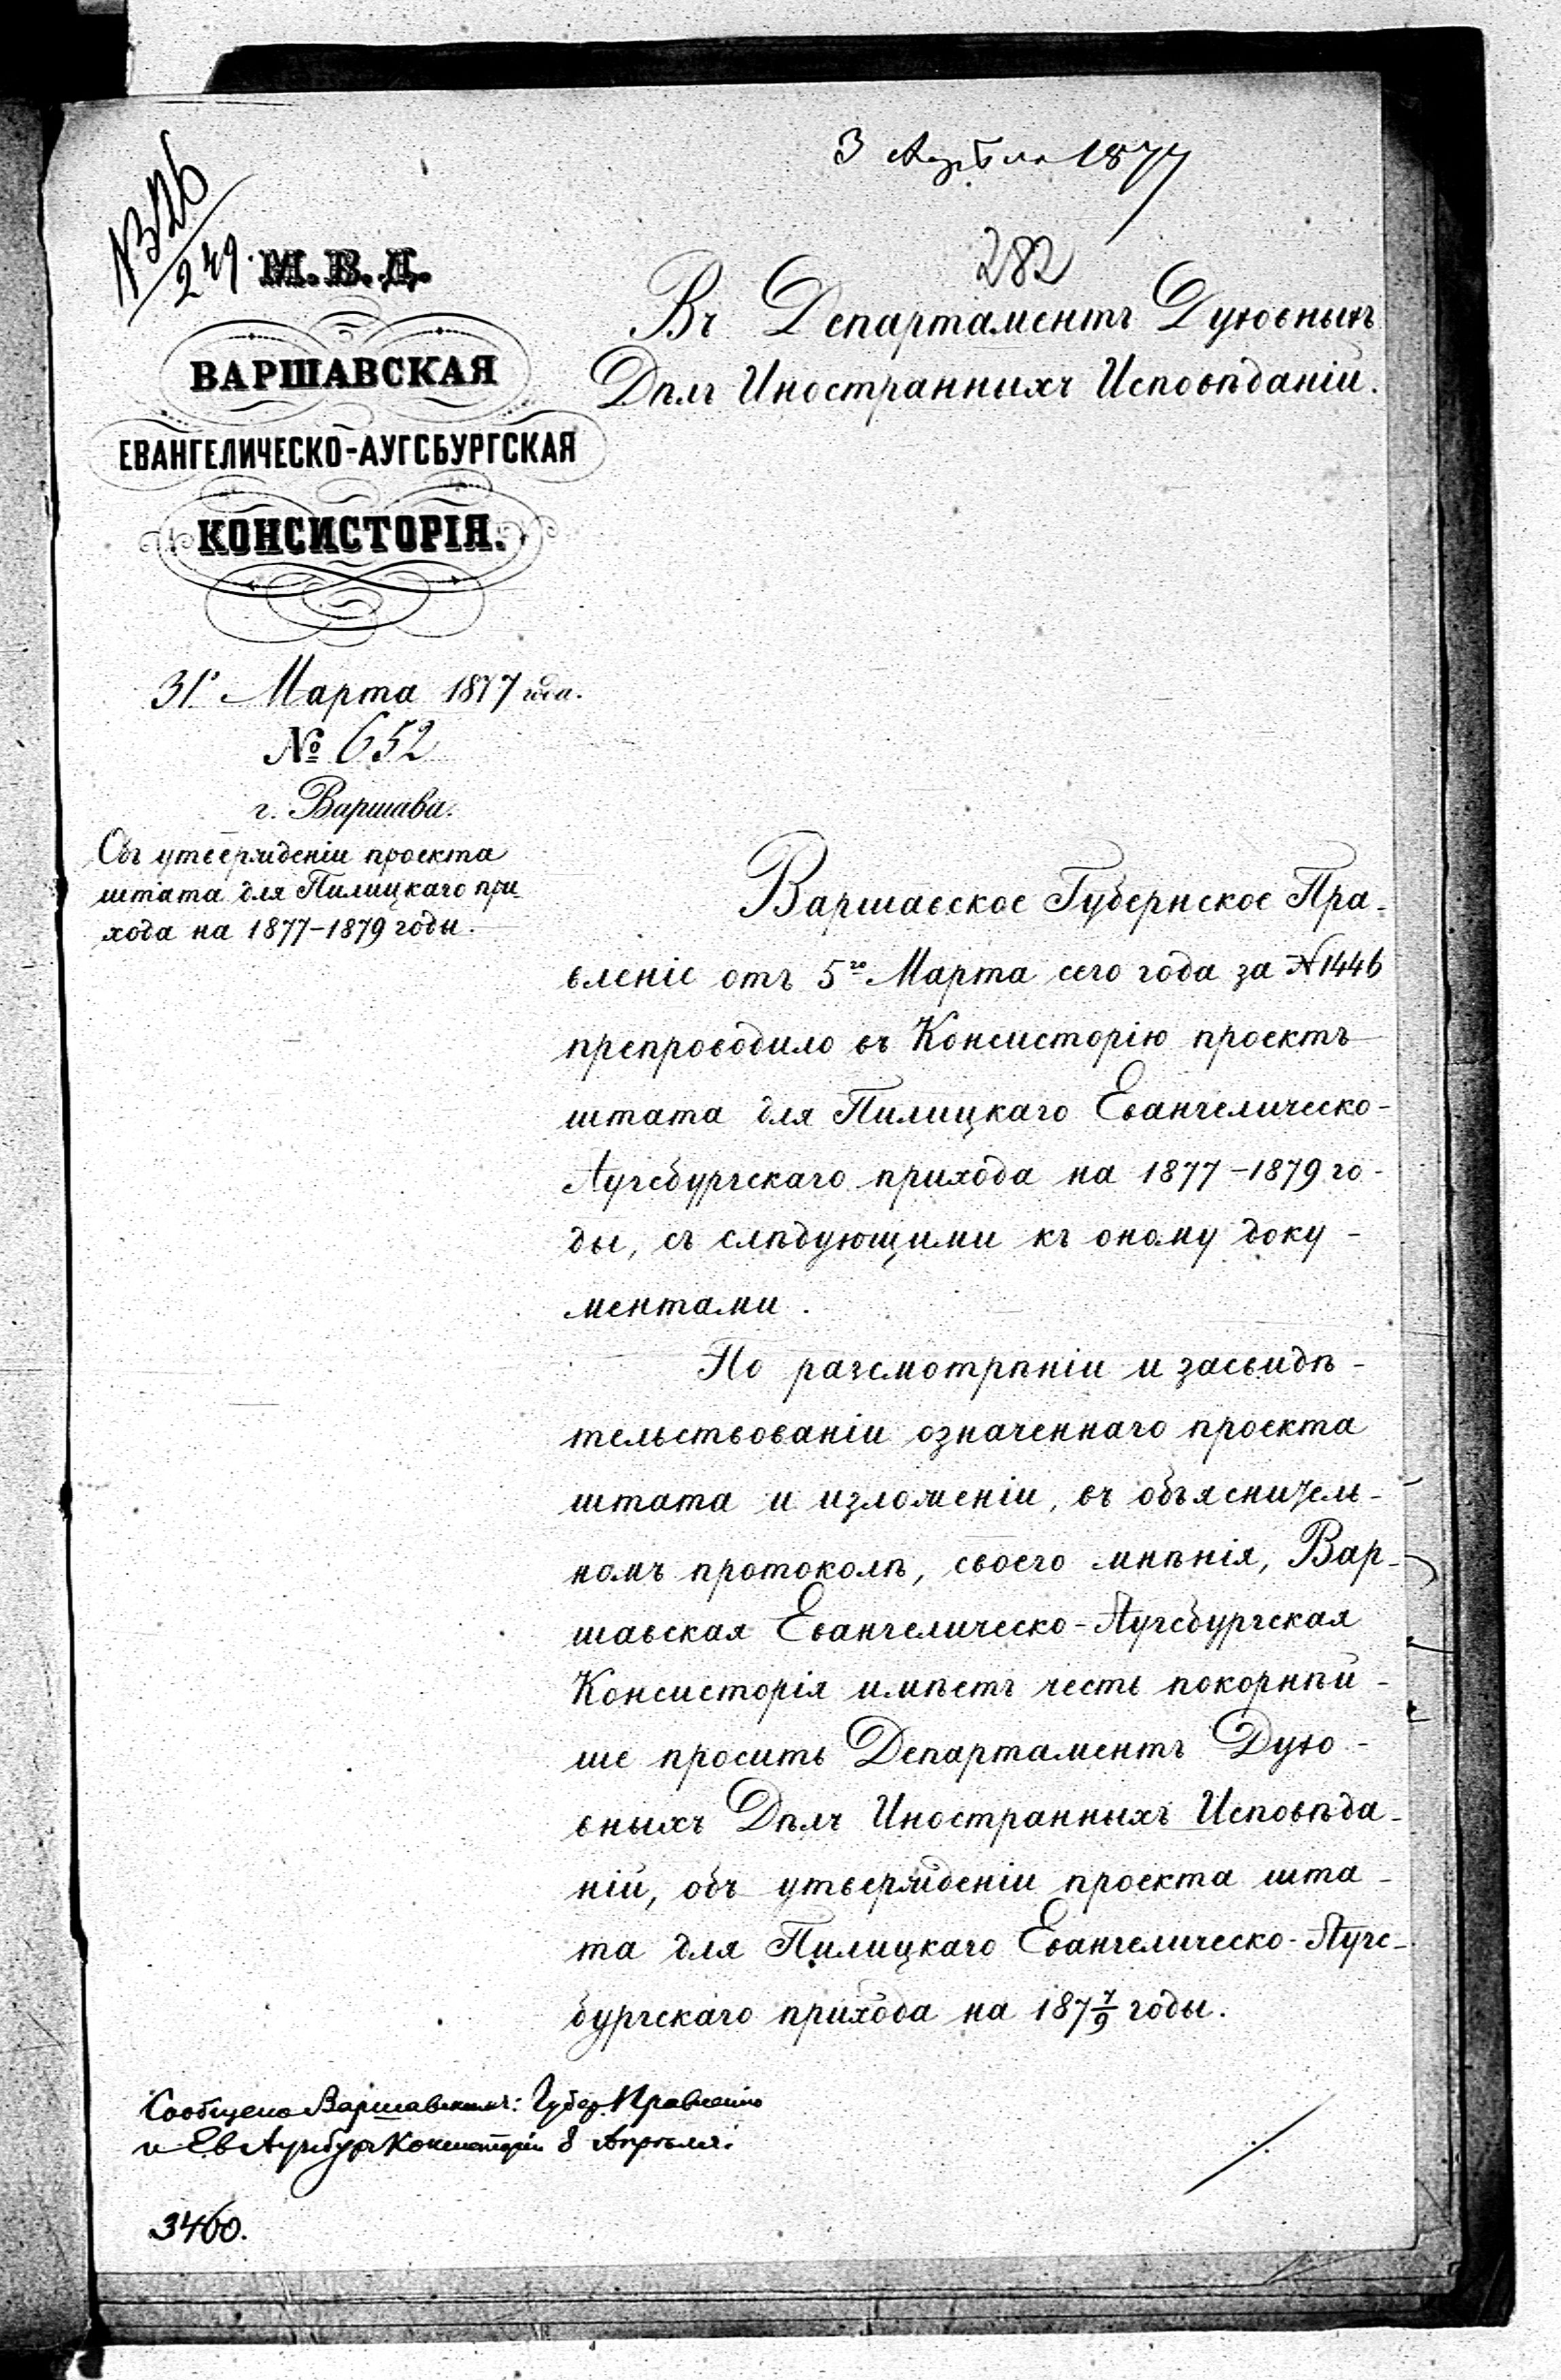 3 Апрѣля 1877
№ 326
249.
282
М. В. Д.
ВАРШАВСКАЯ
ЕВАНГЕЛИЧЕСКО-АУГСБУРГСКАЯ
КОНСИСТОРІЯ.
31го Марта 1877 года.
№ 652
г. Варшава.
Объ утвержденіи проекта
штата для Пилицкаго при-
хода на 1877-1879 годы.
Въ Департаментъ Духовныхъ
Дѣлъ Иностранныхъ Исповѣданій.
Варшавское Губернское Пра-
вленіе отъ 5го Марта сего года за № 1446
препроводило въ Консисторію проектъ
штата для Пилицкаго Евангелическо-
Аугсбургскаго прихода на 1877-1879 го-
ды, съ слѣдующими къ оному доку-
ментами.
По разсмотрѣніи и засвидѣ-
тельствованіи означеннаго проекта
штата и изложеніи, въ объяснитель-
номъ протоколѣ, своего мнѣнія, Вар-
шавская Евангелическо-Аугсбургская
Консисторія имѣетъ честь покорнѣй-
ше просить Департаментъ Духо-
вныхъ Дѣлъ Иностранныхъ Исповѣда-
ній, объ утвержденіи проекта шта-
та для Пилицкаго Евангелическо-Аугс-
бургскаго прихода на 187 7/9 годы.
Сообщено Варшавскому: Губер. Правленію
и Ев Аугсбург Консисторіи 8 Апрѣля.
3460.